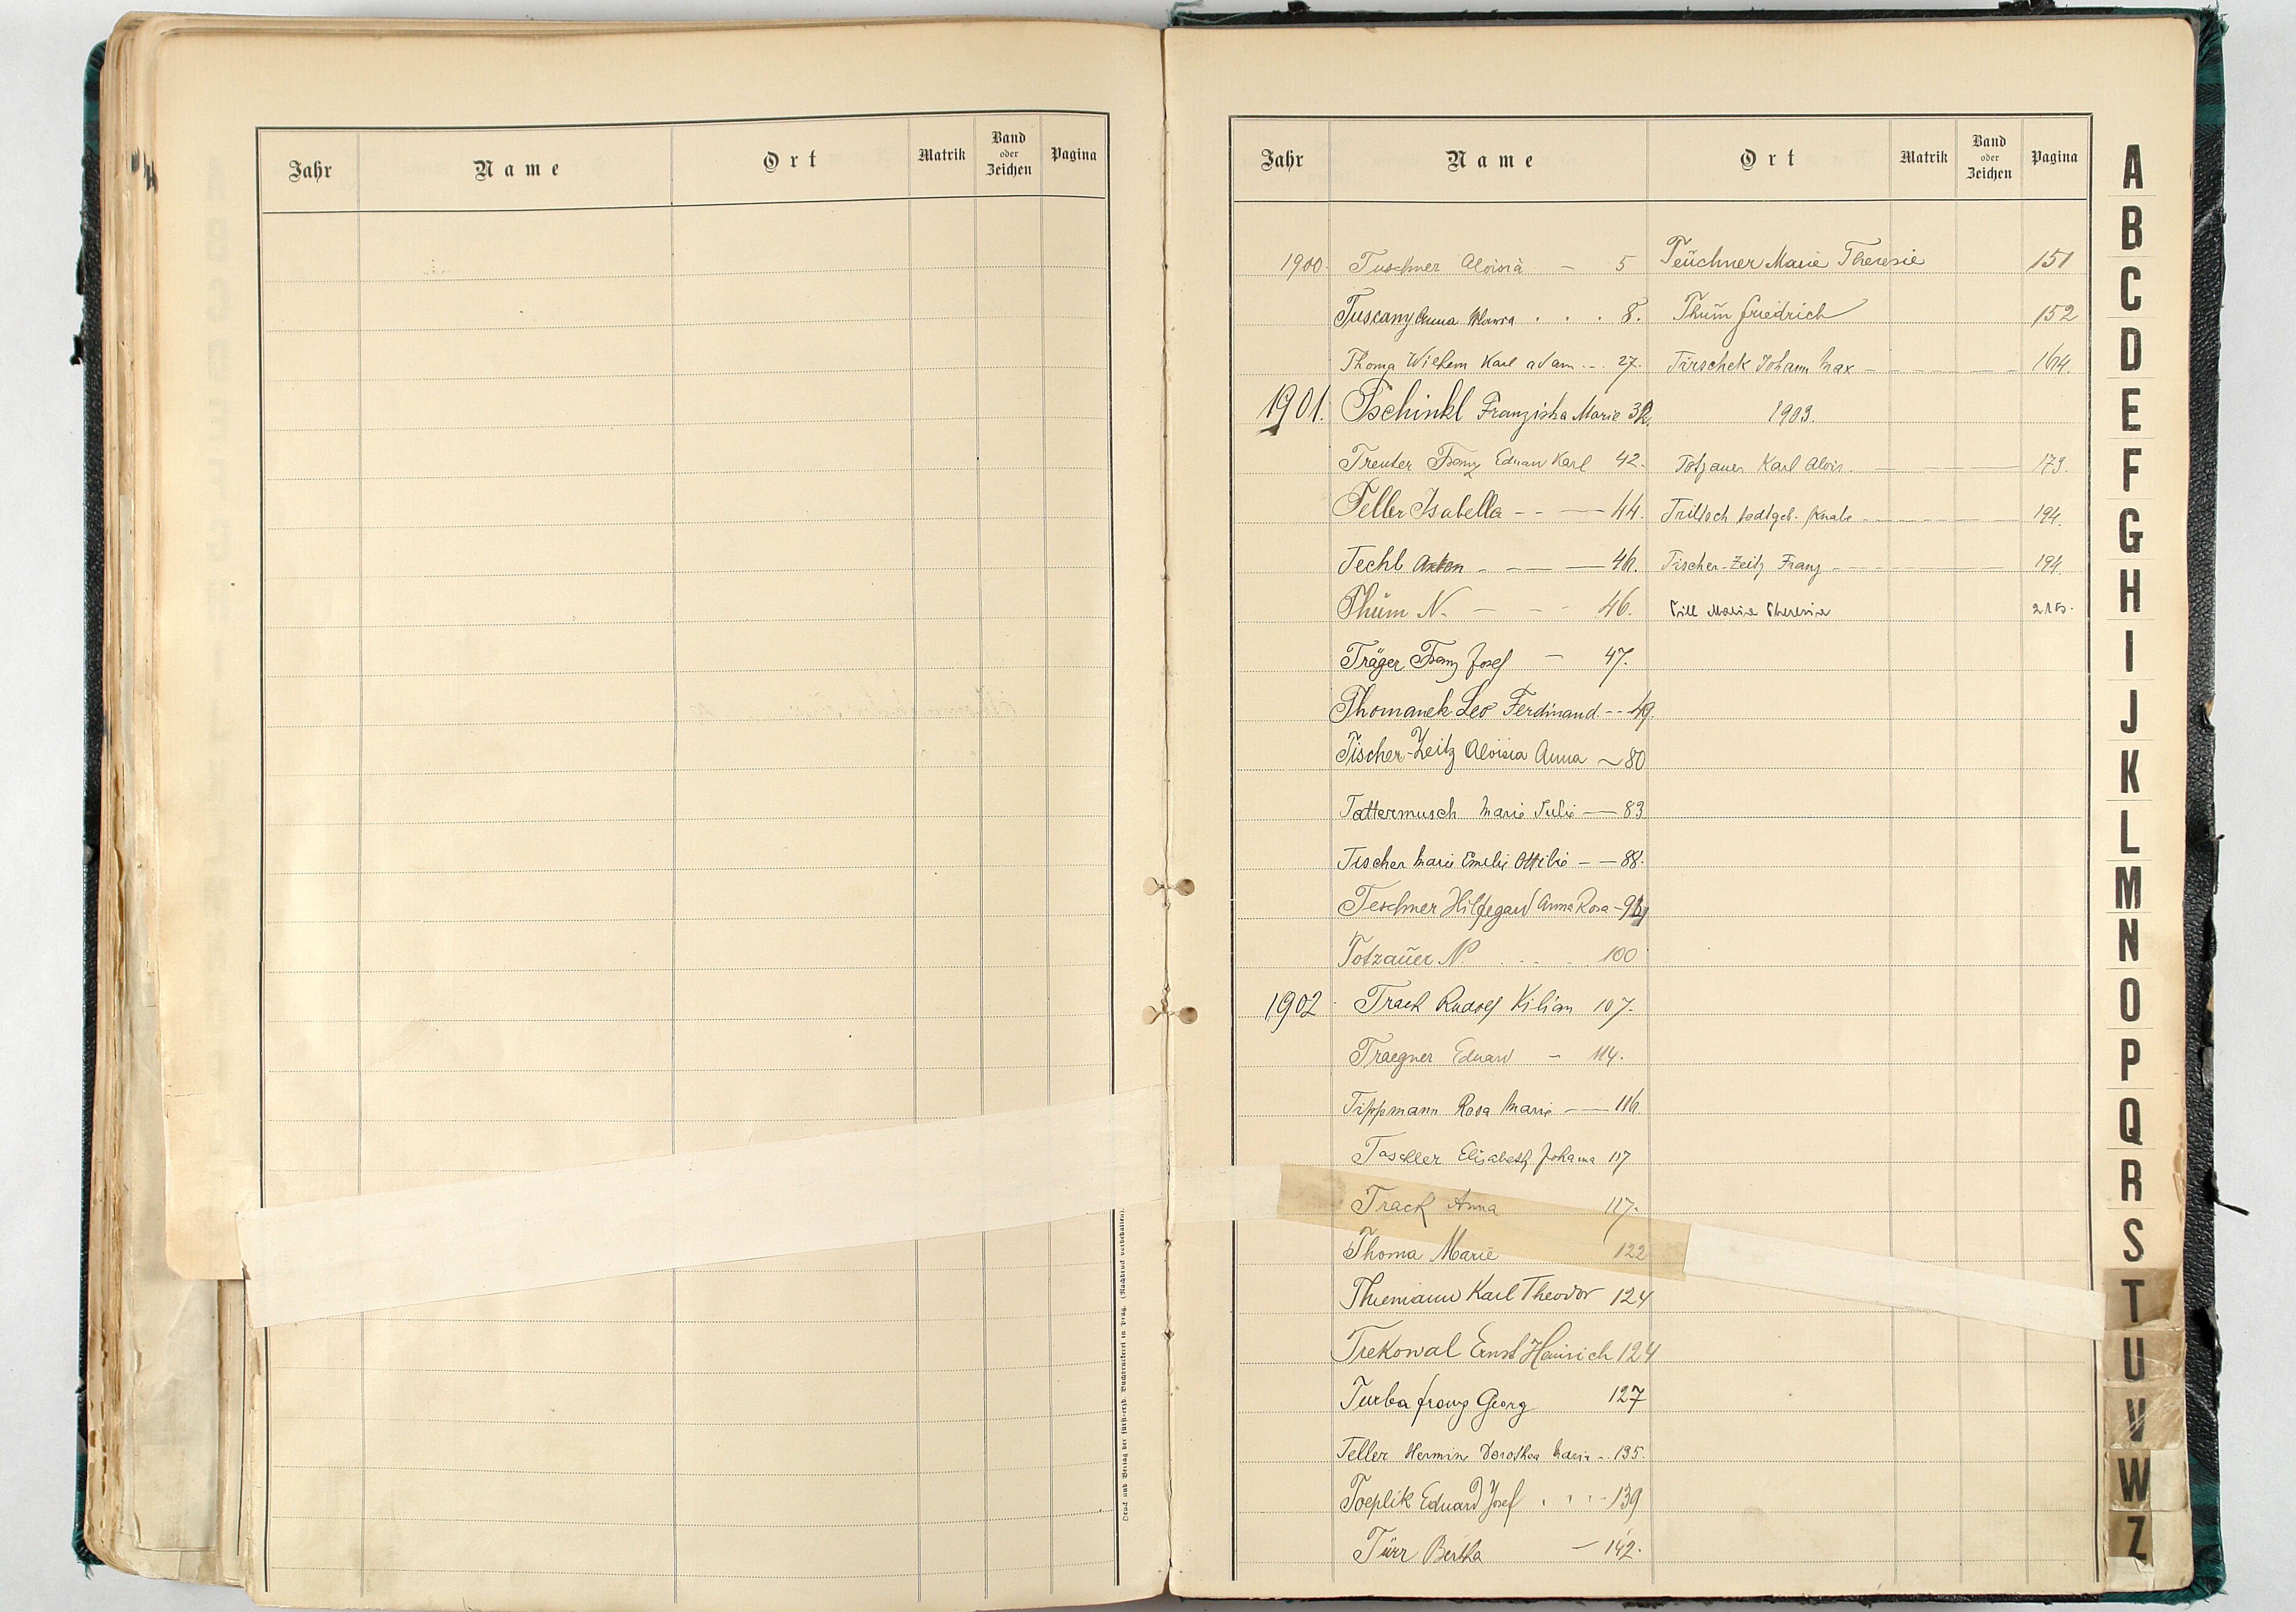 Jahr Name Ort Matrik Band oder Zeichen Pagina
Druck und Verlag der fürst-erzb. Buchdruckerei in Prag. (Nachdruck vorbehalten).
Jahr Name Ort Matrik Band oder Zeichen Pagina
1900. Tuschner Aloisia – 5 Teüchner Marie Theresie 151
Tuscany Anna . . . 8. Thüm Friedrich 152
Thoma Wilhem Karl Adam - - 27. Türschek Johann Max 164.
1901. Tschinkl Franziska Marie 32. 1903.
Treuter Franz Eduard Karl 42. Totzauer Karl Alois 173.
Teller Isabella - - — 44. Tritsch todtgeb. Knabe 194.
Techl Anton - - — — 46. Tischer-Zeitz Franz 194.
Thüm N. — - - 46. Till Maria Theresia
Träger Franz Josef — 47.
Thomanek Leo Ferdinand - - 49.
Tischer-Zeitz Aloisia Anna ~ 80
Tattermusch Marie Julie — 83
Tischer Marie Emilie Ottilie - — 88.
Teschner Hildegard Anna Rosa -
Totzaüer N. . . . . 100
1902 Track Rudolf Kilian 107.
Traegner Eduard – 114.
Tippmann Rosa Marie - — 116.
Elisabeth Johanna 117
Track Anna 117.
Thoma Marie 122
Thiemann Karl Theodor 124
Trekowal Ernst Heinrich 124
Turba Franz Georg 127
Teller Hermine Dorothea Maria - . 135.
Toeplik Eduard Josef . . . - 139
Türr Bertha — 142.
A
B
C
D
E
F
G
H
I
J
K
L
M
N
O
P
Q
R
S
T
U
V
W
Z